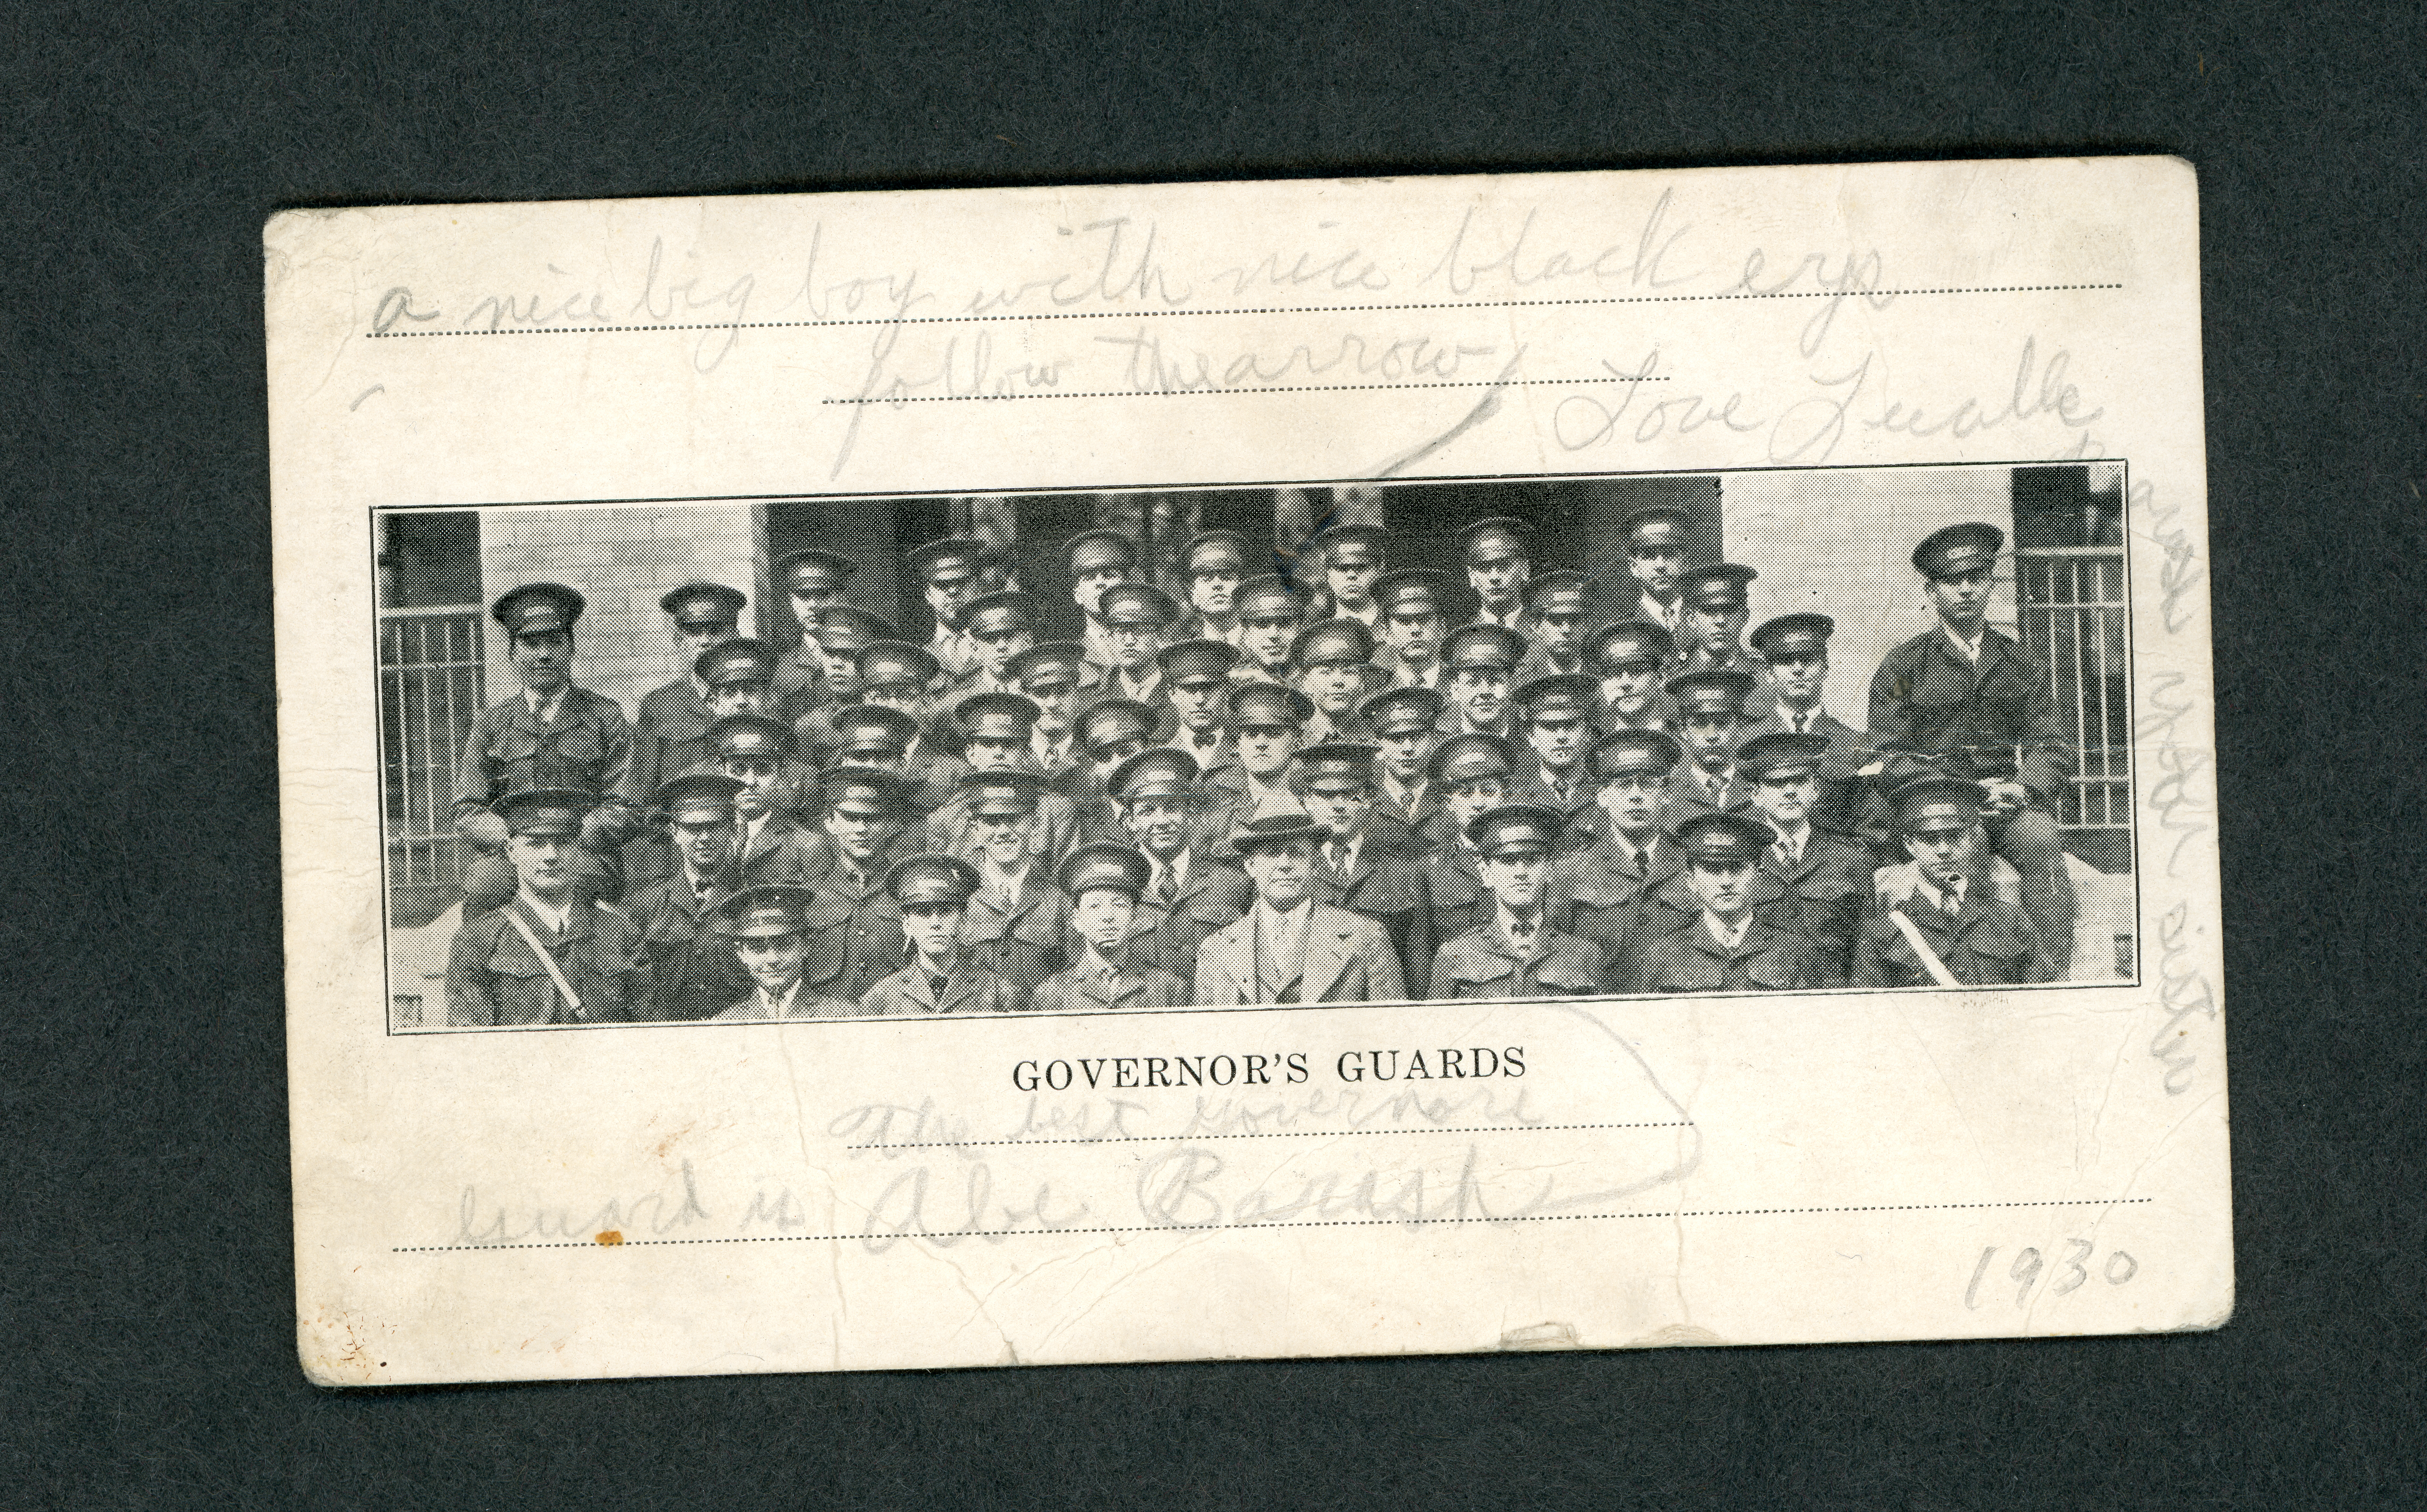 a nice big boy with nice black eys
follow the arrow
Love
GOVERNOR'S GUARDS
The best Governors
Guard is Abe Barash
1930